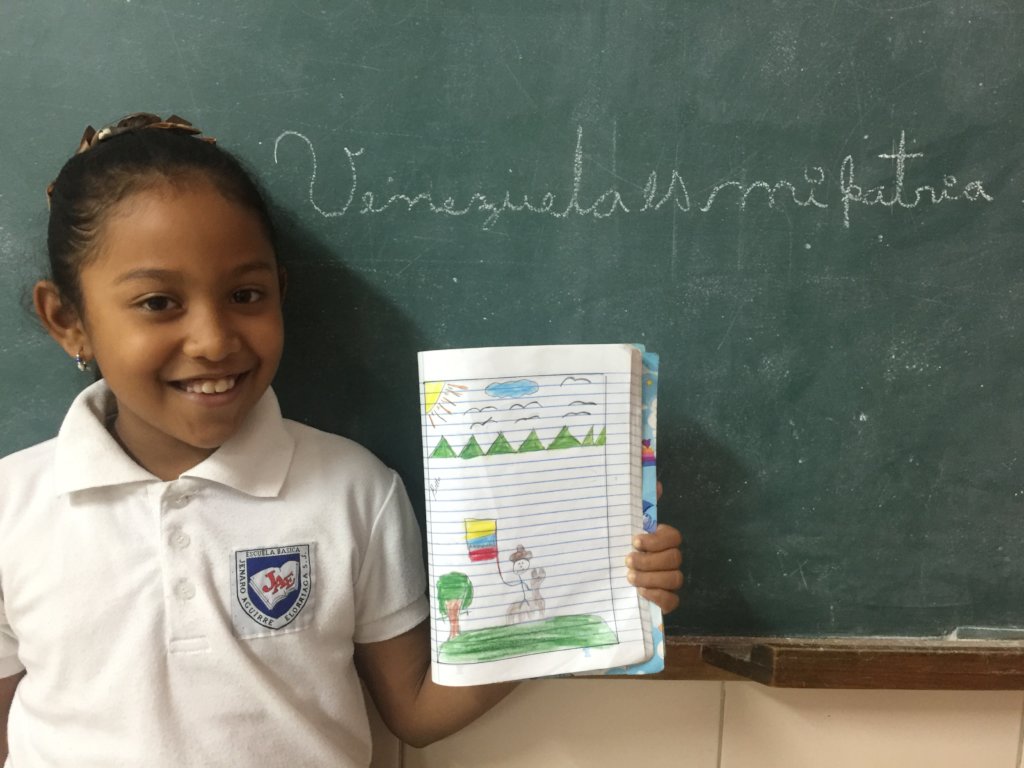 Venezuela es mi patria
ESCUELA BASICA
JENARO AGUIRRE ELORRIAGA S.J.
JAE